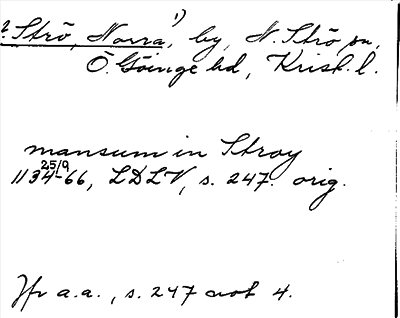 ? Strö, Norra, 1) by, N. Strö sn,
Ö. Göinge hd, Krist. l.
mansum in Stroy
25/9
1134-66, LDLV, s. 247. orig.
Jfr a.a., s. 247 not 4.